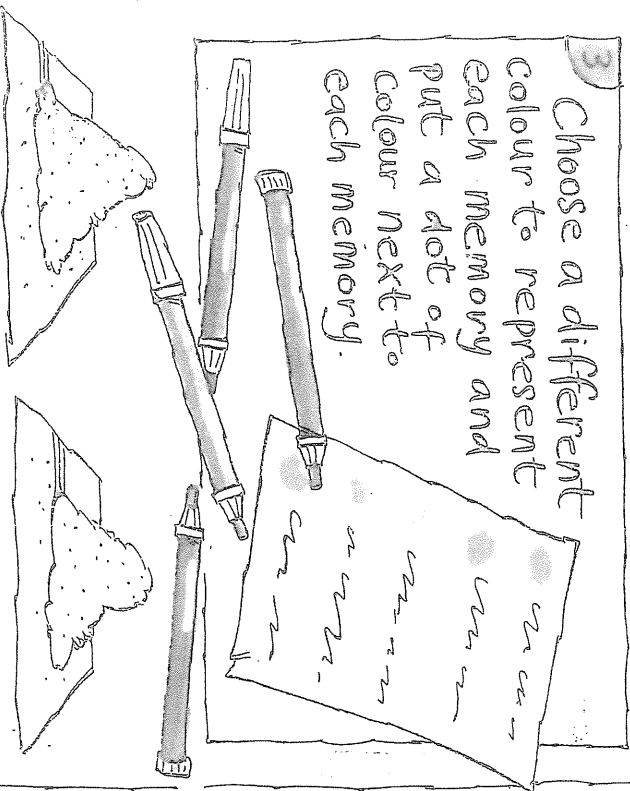 3
Choose a different
colour to represent
each memory and
put a dot of
colour next to
each memory.